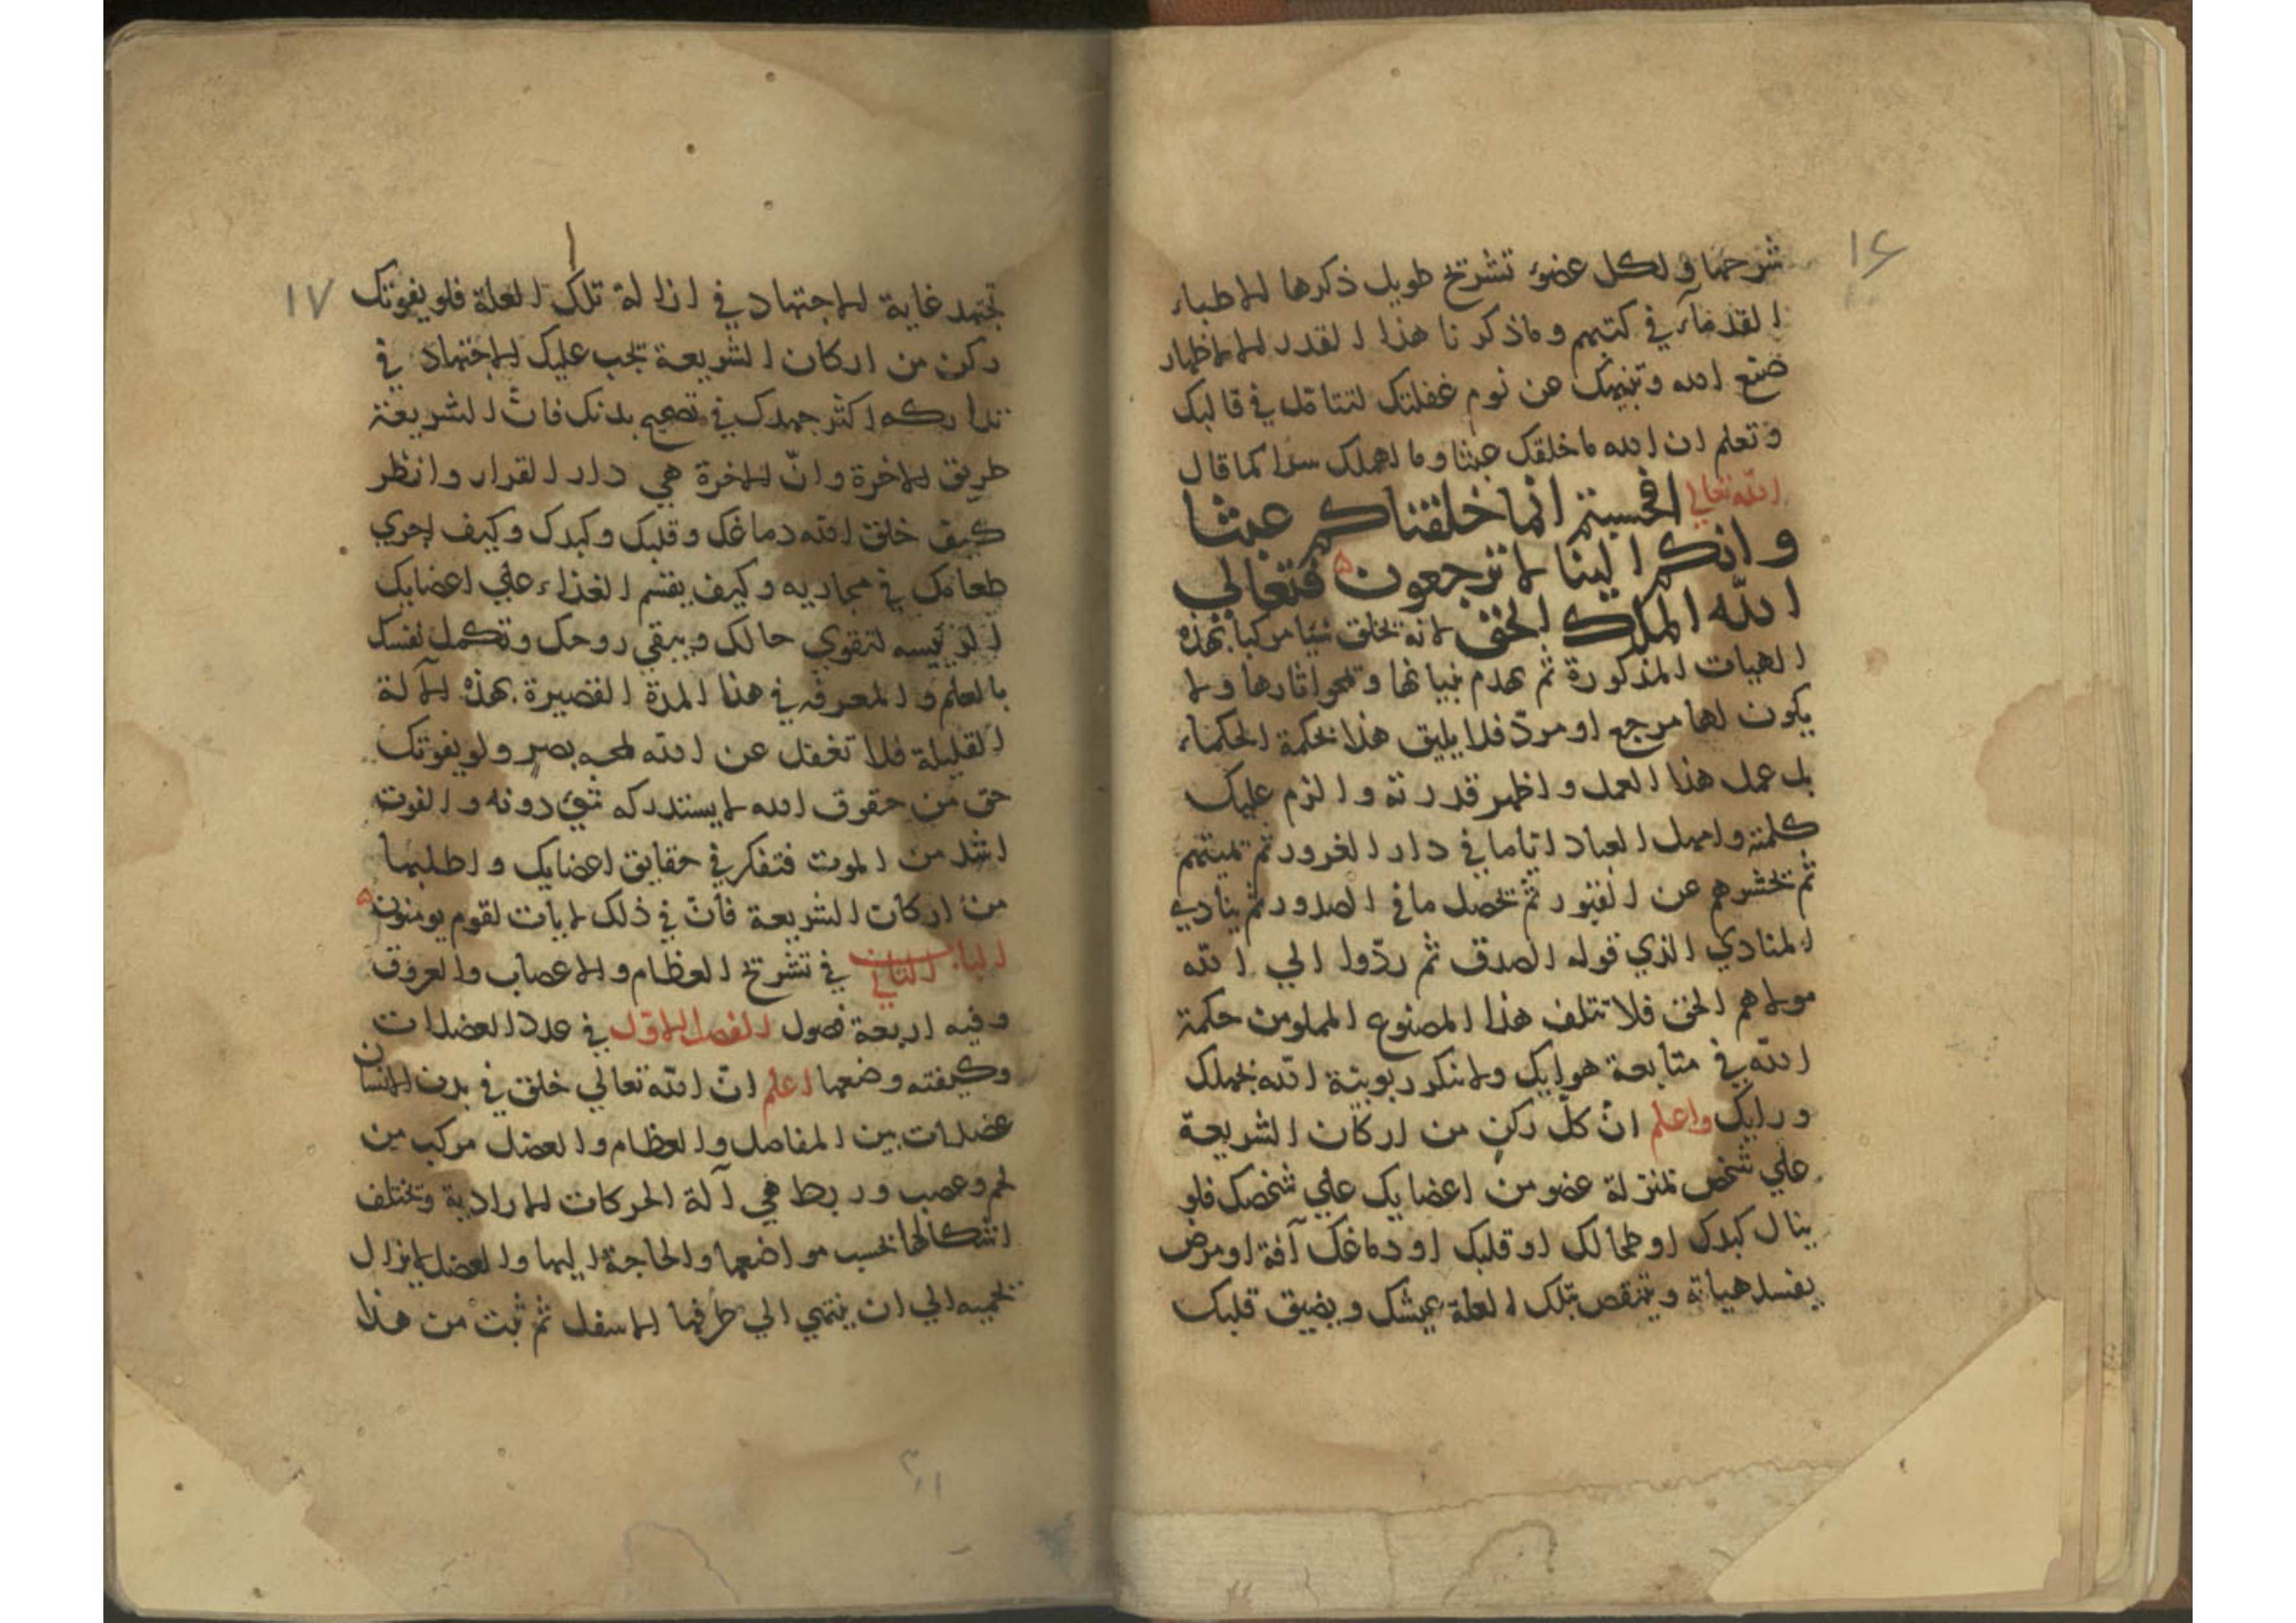 ۱۶
شرحها ولكل عضوء تشريح طويل ذكرها الاطباء
القدمآء في كتبهم وماذكرنا هذا القدر الا لاظهار
صنع الله وتنبيهك عن نوم غفلتك لتتامل في قالبك
وتعلم ان الله ماخلقك عبثا وما اهملك سدا كما قال
الله تعالي افحسبتم انما خلقناكم عبثا
وانكم الينا لا ترجعون فتعالي
الله الملك الحق لانه يخلق شيئا مركبا بهذه
الهيات المذكورة ثم يهدم بنيانها وتمحو اثارها ولا
يكون لها مرجع او مردّ فلا يليق هذا بحكمة الحكماء
بل عمل هذا العمل واظهر قدرته والزم عليك
كلمته وامهل العباد ايّاما في دار الغرور ثم يميتهم
ثم يحشرهم عن القبور ثم يحصل ما في الصدور ثم ينادي
المنادي الذي قوله الصدق ثم ردّوا الي الله
مولاهم الحق فلا تتلف هذا المصنوع المملو من حكمة
الله في متابعة هوايك ولا تنكر ربوبية الله بجهلك
ورايك واعلم انّ كلّ ركن من اركان الشريعة
علي شخص بمنزلة عضو من اعضايك علي شخصك فلو
ينال كبدك او طحالك او قلبك او دماغك آفة او مرض
يفسد هياته وينقص بتلك العلة عيشك ويضيق قلبك
۱۷
تجتهد غاية الاجتهاد في ازالة تلك العلة فلو يفوتك
ركن من اركان الشريعة يجب عليك الاجتهاد في
تداركه اكثر جهدك في تصحيح بدنك فانّ الشريعة
طريق الاخرة وانّ الاخرة هي دار القرار وانظر
كيف خلق الله دماغك وقلبك وكبدك وكيف اجري
طعامك في مجاريه وكيف يقسم الغذاء علي اعضايك
الرئيسه لتقوي حالك ويبقي روحك وتكمل نفسك
بالعلم والمعرفه في هذا المدة القصيرة بهذه الآلة
القليلة فلا تغفل عن الله لمحه بصر ولو يفوتك
حق من حقوق الله لا يستدركه شيء دونه والفوت
اشد من الموت فتفكر في حقايق اعضايك واطلبها
من اركان الشريعة فانّ في ذلك لايات لقوم يومنون
الباب الثاني في تشريح العظام والاعصاب والعروق
وفيه اربعة فصول الفصل الاول في عدد العضلات
وكيفته وضعها اعلم انّ الله تعالي خلق في بدن الانسان
عضلات بين المفاصل والعظام والعضل مركب من
لحم وعصب وربط هي آلة الحركات الارادية وتختلف
اشكالها بحسب مواضعها والحاجة اليها والعضل لايزال
لحميه الي ان ينتهي الي طرفها الاسفل ثم ثبت من هذا